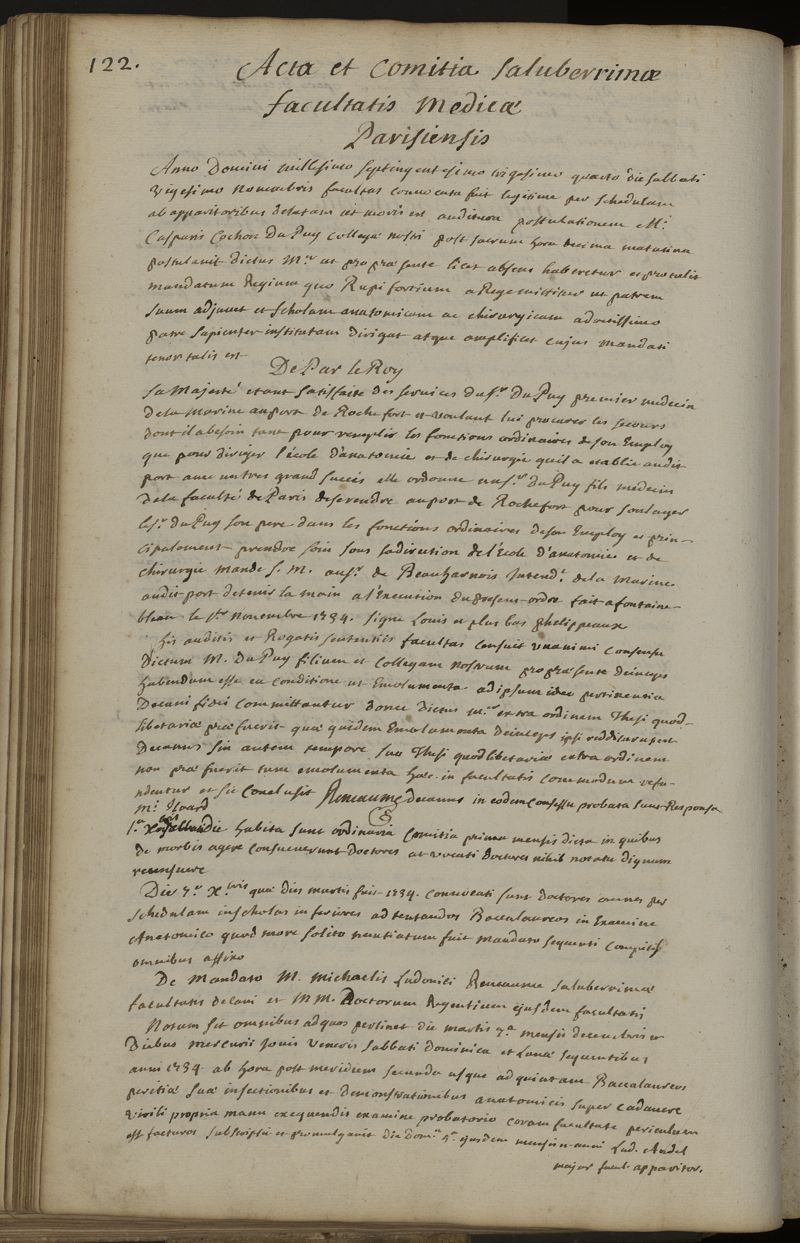 122.
Acta et Comitia Saluberrimæ
facultatis Medicæ
Parisiensis
Anno Domini millesimo septingentesimo trigesimo quarto die sabbati
vigesimo novembris facultas convocata fuit legitime per schedulam
ab apparitoribus delatam ut moris est auditura postulationem Mi.
Casparis Cochon Du Puy collegæ nostri post sacrum hora decima matutina
postulavit dictus Mer. ut pro præsente licet absens haberetur et protulit
mandatum Regium quo Rupifortium a Rege mittitur ut patrem
suum adjuvet et scholam anatomicam ac chirurgicam a doctissimo
patre sapienter institutam dirigat atque amplificet cujus mandati
tenor talis est
De Par le Roy
Sa Majesté etant satisfaite des services du sr. Du Puy premier medecin
de la Marine au port de Rochefort et voulant lui procurer les secours
dont il a besoin tant pour remplir les fonctions ordinaires de son Employ
que pour diriger l'école d'anatomie et de chirurgie qu'il a etablie audit
port avec un tres grand succès elle ordonne au sr. Du Puy fils medecin
de la faculté de Paris de se rendre au port de Rochefort pour soulager
le sr. du Puy son pere dans les fonctions ordinaires de son Employ et prin-
cipalement prendre soin sous sa direction de l'École d'anatomie et de
chirurgie Mande S. M. au sr. de Beauharnois Intendt. de la Marine
audit port de tenir la main a l'Execution du present ordre fait a fontaine-
bleau le 1er novembre 1734. signé Louis et plus bas Phelippeaux
His auditis et Rogatis sententiis facultas censuit unanimi consensu
Dictum M. Du Puy filium et collegam nostrum pro præsente deinceps
habendum esse ea conditione ut Emolumenta ad ipsum pertinentia
Decani fidei committantur donec dictus mer. extra ordinem Thesi quod-
libetariæ præfuerit quæ quidem Emolumenta deinceps ipsi redditurus est
Decanus sin autem tempore suo Thesi quodlibetariæ extra ordinem
non præfuerit tum emolumenta hæc in facultatis commodum refu-
ndentur et sic conclusit Reneaume decanus in eodem consessu probata sunt Responsa
Mi. Isoard
1a. Xbris die habita sunt ordinaria Comitia prima mensis dicta in quibus
de morbis agere consueverunt Doctores at vocati doctores nihil notatu dignum
recensuere
Die 7a. Xbris quæ dies martis fuit 1734. convocati sunt doctores omnes per
schedulam in scholas inferiores ad tentandos Baccalaureos in Examine
Anatomico quod more solito nuntiatum fuit mandato sequenti compitis
omnibus affixo
De Mandato M. Michaelis Ludovici Reneaume saluberrimæ
facultatis decani et M M. Doctorum Regentium ejusdem facultatis
Notum sit omnibus ad quos pertinet die martis 7a. mensis decembris et
Diebus mercurii Jovis Veneris Sabbati Dominica et Lunæ sequentibus
anni 1734 ab hora post meridiem secunda usque ad quintam Baccalaureos
peritiæ suæ insectionibus et demonstrationibus anatomicis super cadavere
virili propria manu exequendis examine probatorio coram facultate periculum
est facturos subscripsit et promulgavit die Dom. 5a. ejusdem mensis et anni Lud. Andel
major facul. apparitor.